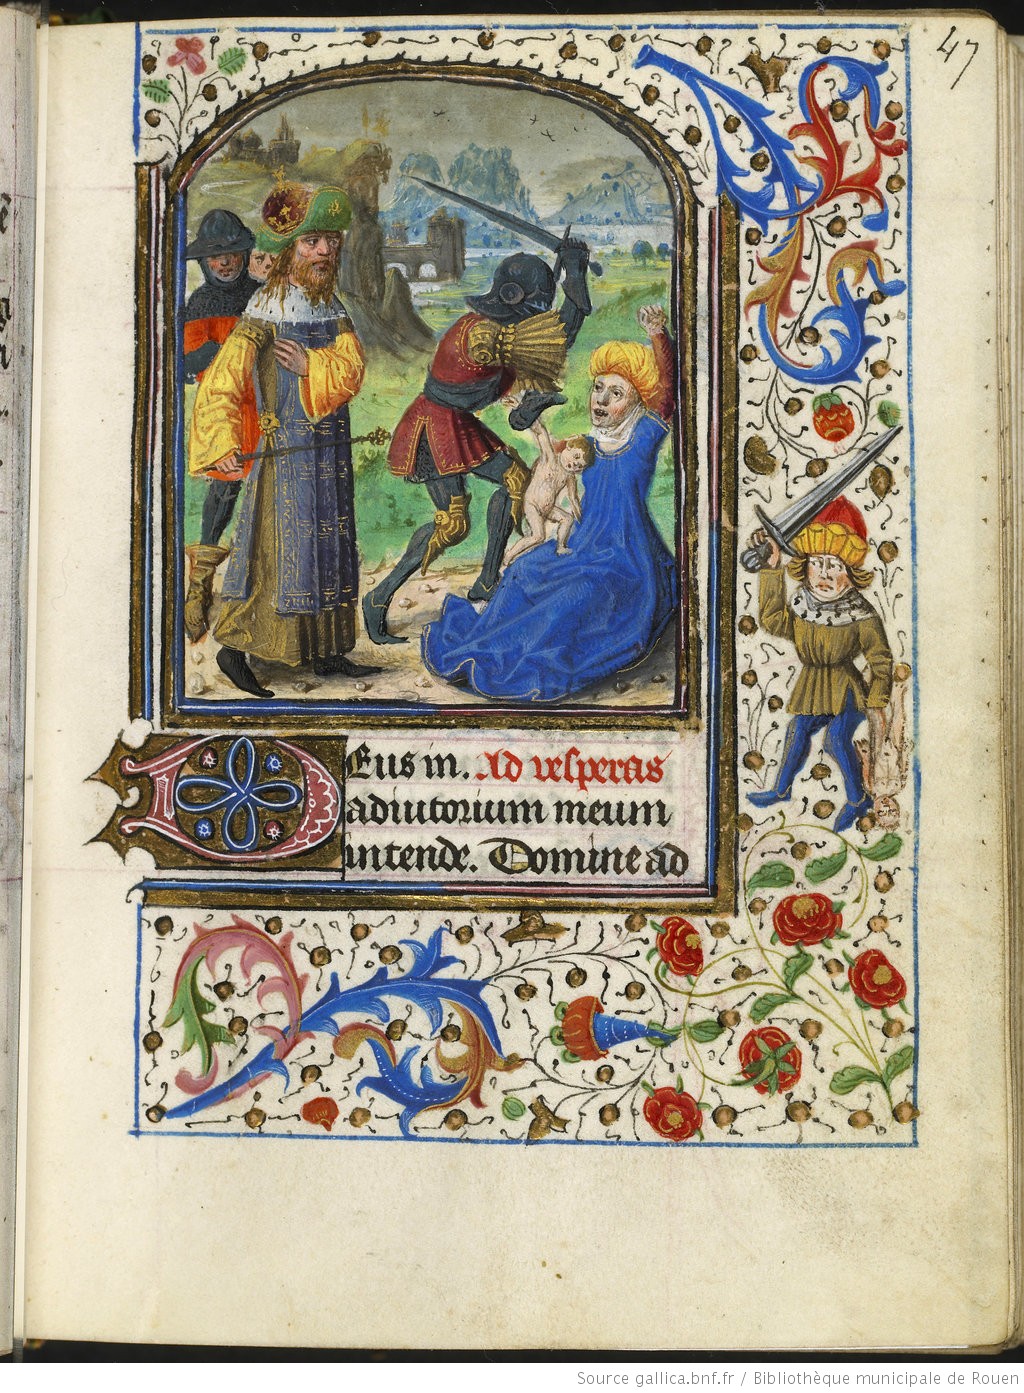 47
Deus in. Ad vesperas
adiutorium meum
intende. Domine ad
Source gallica.bnf.fr / Bibliothèque municipale de Rouen